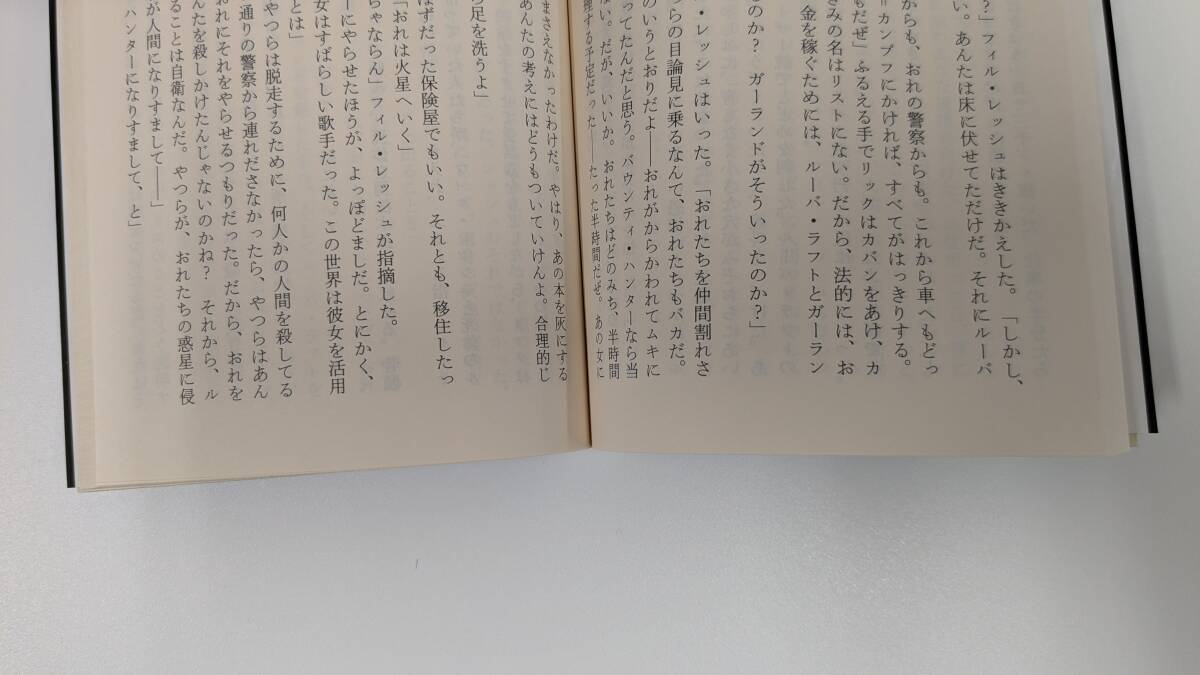 ？」フィル・レッシュはききかえした。「しかし、
い。あんたは床に伏せてただけだ。それにルーバ
からも、おれの警察からも。これから車へもどっ
＝カンプフにかければ、すべてがはっきりする。
もだぜ」ふるえる手でリックはカバンをあけ、カ
きみの名はリストにない。だから、法的には、お
金を稼ぐためには、ルーバ・ラフトとガーラン
のか？　ガーランドがそういったのか？」
・レッシュはいった。「おれたちを仲間割れさ
らの目論見に乗るなんて、おれたちもバカだ。
のいうとおりだよ――おれがからかわれてムキに
ってたんだと思う。バウンティ・ハンターなら当
ない。だが、いいか。おれたちはどのみち、半時間
理する予定だった――たった半時間だぜ。あの女に
まさえなかったわけだ。やはり、あの本を灰にする
あんたの考えにはどうもついていけんよ。合理的じ
ら足を洗うよ」
はずだった保険屋でもいい。それとも、移住したっ
「おれは火星へいく」
ちゃならん」フィル・レッシュが指摘した。
ーにやらせたほうが、よっぽどましだ。とにかく、
女はすばらしい歌手だった。この世界は彼女を活用
とは」
やつらは脱走するために、何人かの人間を殺してる
通りの警察から連れださなかったら、やつらはあん
おれにそれをやらせるつもりだった。だから、おれを
んたを殺しかけたんじゃないのかね？　それから、ル
ることは自衛なんだ。やつらが、おれたちの惑星に侵
が人間になりすまして――」
ハンターになりすまして、と」